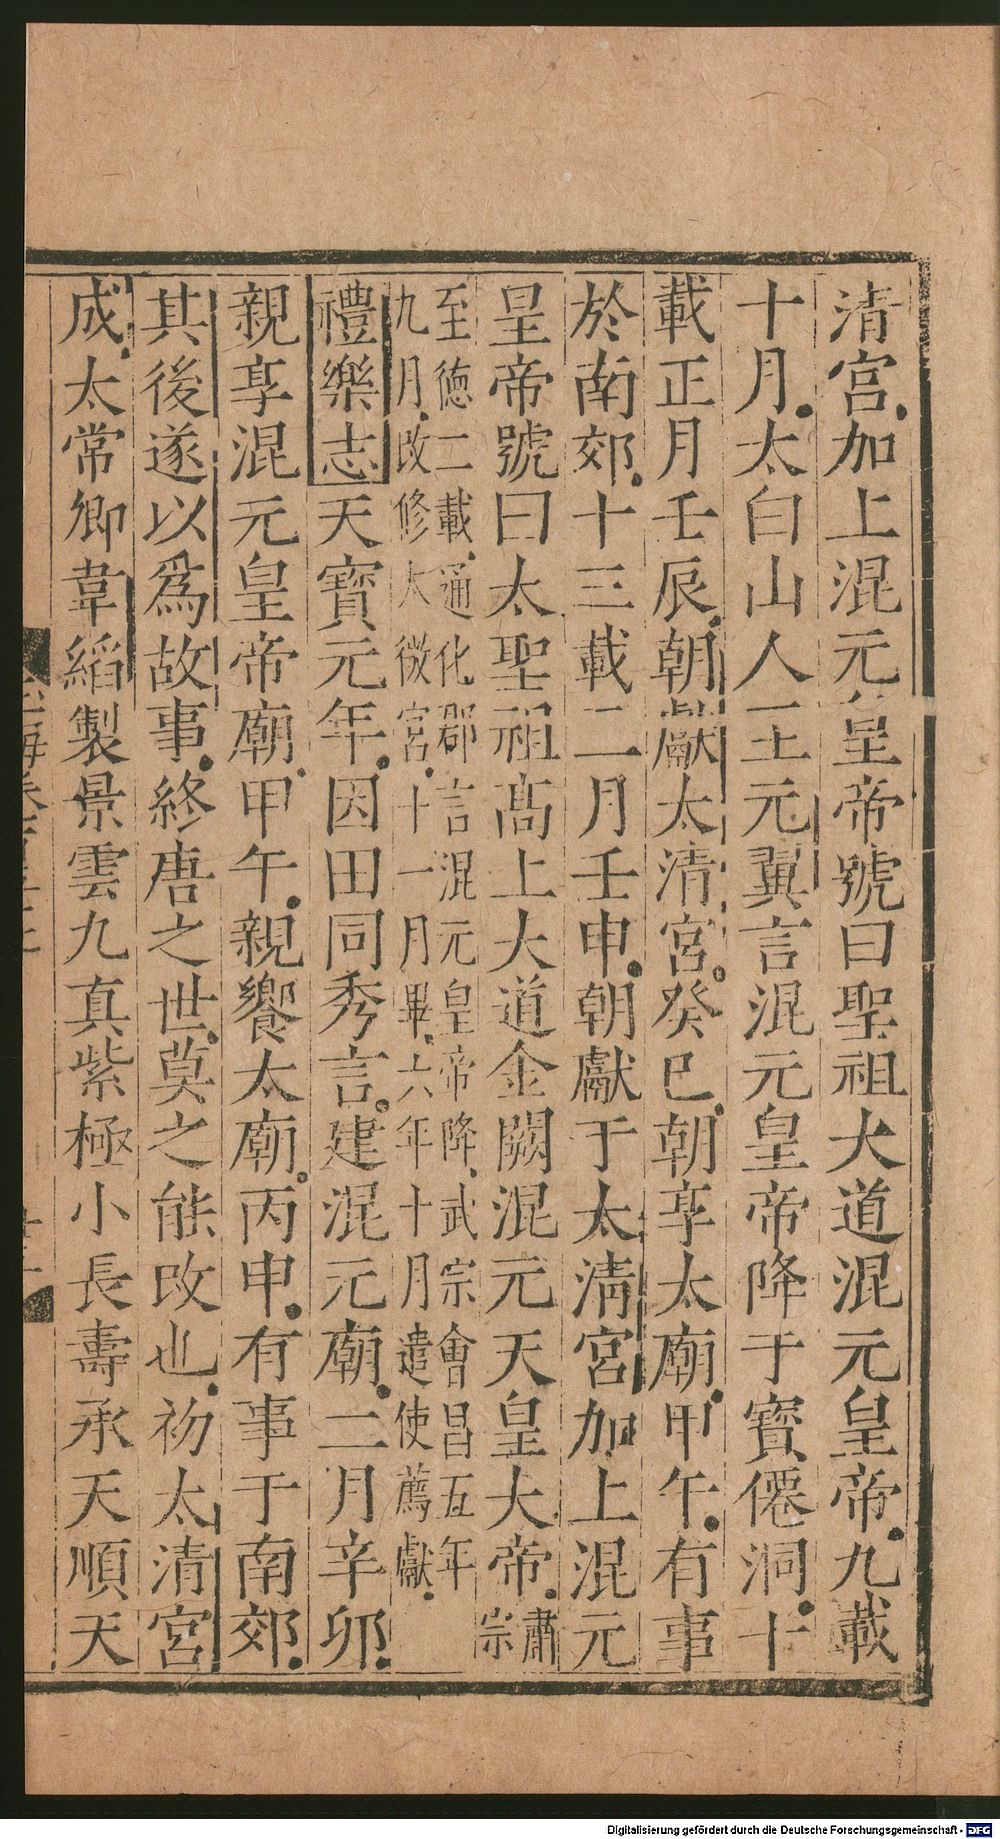 清宮。加上混元皇帝號曰聖祖大道混元皇帝。九載
十月。太白山人王元翼言混元皇帝降于寶僊洞。十
載正月壬辰。朝獻太清宮。癸巳。朝享太廟。甲午。有事
於南郊。十三載二月壬申。朝獻于太清宮加上混元
皇帝號曰太聖祖髙上大道金闕混元天皇大帝。肅宗
至德二載。通化郡言混元皇帝降。武宗會昌五年
九月。改修大微宮。十一月畢。六年十月遣使薦獻。
禮樂志天寶元年。因田同秀言。建混元廟。二月辛卯。
親享混元皇帝廟。甲午。親饗太廟。丙申。有事于南郊。
其後遂以為故事。終唐之世。莫之能改也。初太清宮
成。太常卿韋縚製景雲九真紫極小長壽承天順天
Digitalisierung gefördert durch die Deutsche Forschungsgemeinschaft - DFG